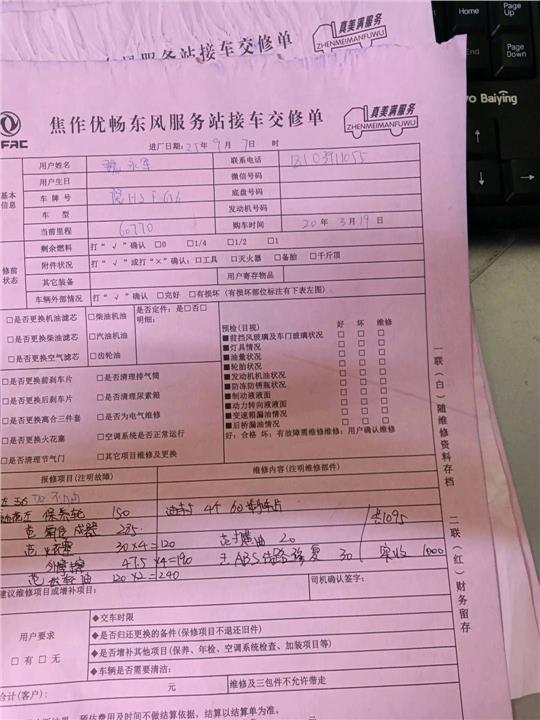 服务站接车交修单
真美满服务
ZHENMEIMANFUWU
Home
Page Up
End
Page Down
焦作优畅东风服务站接车交修单
真美满服务
ZHENMEIMANFUWU
Baiying
进厂日期：25年9月7日 时
基本信息
用户姓名
联系电话
用户生日
微信号码
车牌号
底盘号码
车 型
发动机号码
当前里程 60770
购车时间 20年3月19日
修前状态
剩余燃料 打“√”确认 □0 □1/4 □1/2 □1
附件状况 打“√”或打“×”确认：□工具 □灭火器 □备胎 □千斤顶
其它装备
用户寄存物品
车辆外部情况 打“√”确认 □完好 □有损坏（有损坏部位标注有下表左图）
□是否更换机油滤芯 □柴油机油 是否定件：是□否□
□是否更换柴油滤芯 □汽油机油 明细：
□是否更换空气滤芯 □齿轮油
□是否更换前刹车片 □是否清理排气筒
□是否更换后刹车片 □是否清理尿素箱
□是否更换离合三件套 □是否为电气维修
□是否更换火花塞 □空调系统是否正常运行
□是否清理节气门 □其它项目维修及更换
预检（目视） 好 坏 维修
■前挡风玻璃及车门玻璃状况 □ □ □
■灯具情况 □ □ □
■油量状况 □ □ □
■轮胎状况 □ □ □
■发动机机油状况 □ □ □
■防冻防锈瓶状况 □ □ □
■制动液液面 □ □ □
■动力转向液液面 □ □ □
■变速箱漏油情况 □ □ □
■后桥漏油情况 □ □ □
好：合格 坏：有故障需维修维修：用户确认维修
报修项目（注明故障）
维修内容（注明维修部件）
150
235
30×4=120 20
47.5×4=190 ABS线路修复 30
120×2=240
共1095
实收 1000
建议维修项目或增补项目：
司机确认签字：
用户要求
□有 □无
◆交车时限
◆是否归还更换的备件（保修项目不退还旧件）
◆是否增补其他项目（保养、年检、空调系统检查、加装项目等）
◆车辆是否需要清洁：
合计（客户）： 元
维修及三包件不允许带走
预估费用及时间不做结算依据，结算以结算单为准。
一联（白）随维修资料存档
二联（红）财务留存